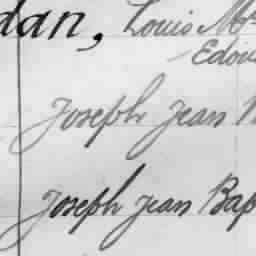 dan, Louis
Joseph Jean
Joseph Jean Bap